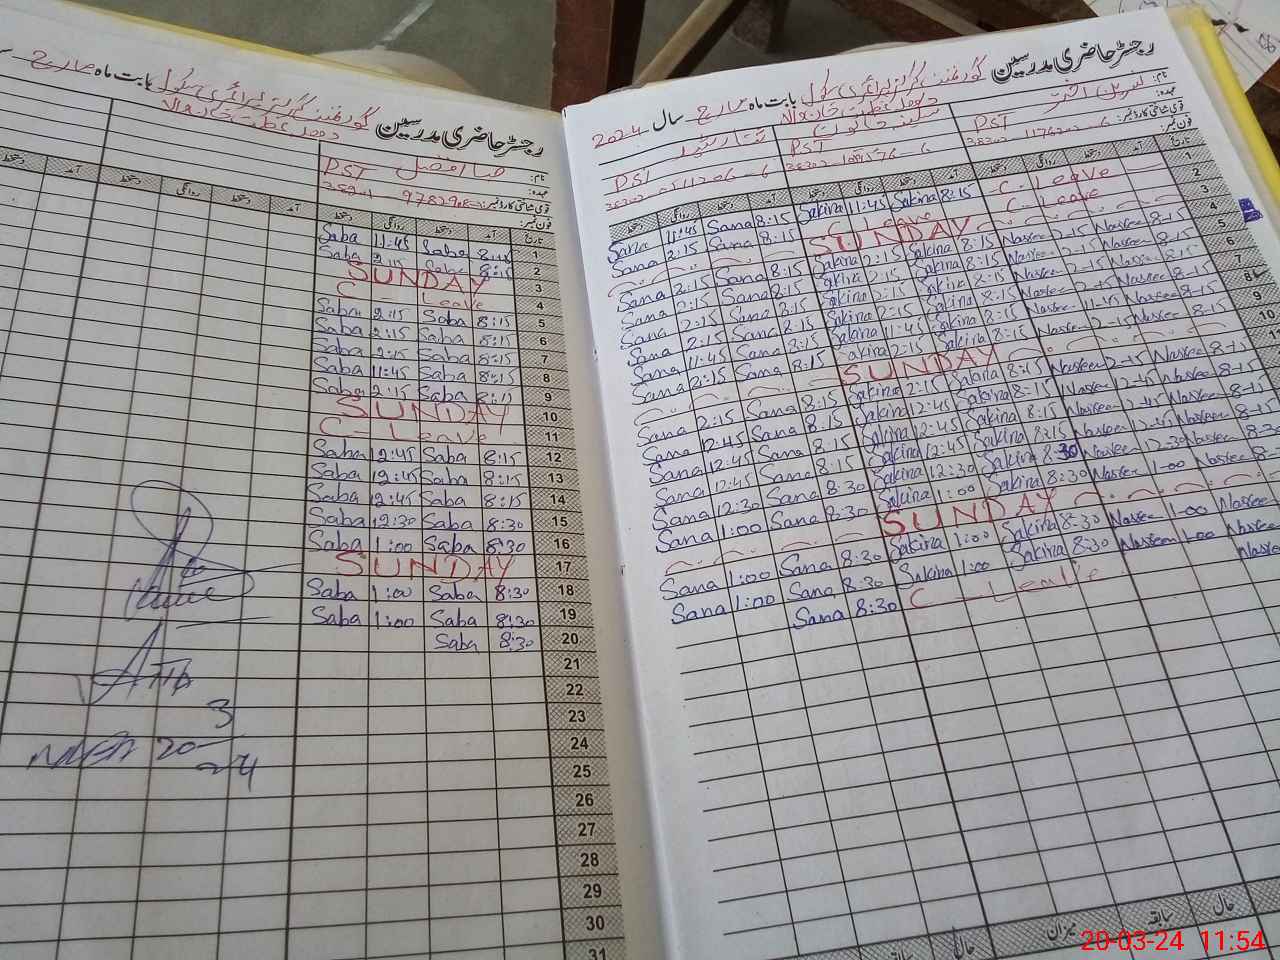 رجسٹر حاضری مدرسین گورنمنٹ گرلز پرائمری سکول بابت ماہ مارچ سال 2024
نام:
عہدہ: PST PST PST
قومی شناختی کارڈ نمبر:
فون نمبر:
Sana 11:45 Sana 8:15 Sakina 11:45 Sakina 8:15 C. Leave
Sana 2:15 Sana 8:15 C. Leave C. Leave
SUNDAY
Sana 2:15 Sana 8:15 Sakina 2:15 Sakina 8:15 Nasreen 2-15 Nasreen 8-15
Sana 2:15 Sana 8:15 Sakina 2:15 Sakina 8:15 Nasreen 2-15 Nasreen 8-15
Sana 2:15 Sana 8:15 Sakina 2:15 Sakina 8:15 Nasreen 2-15 Nasreen 8-15
Sana 11:45 Sana 8:15 Sakina 11:45 Sakina 8:15 Nasreen 11-45 Nasreen 8-15
Sana 2:15 Sana 8:15 Sakina 2:15 Sakina 8:15 Nasreen 2-15 Nasreen 8-15
SUNDAY
Sana 2:15 Sana 8:15 Sakina 2:15 Sakina 8:15 Nasreen 2-15 Nasreen 8-15
Sana 12:45 Sana 8:15 Sakina 12:45 Sakina 8:15 Nasreen 12-45 Nasreen 8-15
Sana 12:45 Sana 8:15 Sakina 12:45 Sakina 8:15 Nasreen 12-45 Nasreen 8-15
Sana 12:45 Sana 8:15 Sakina 12:45 Sakina 8:15 Nasreen 12-45 Nasreen 8-15
Sana 12:30 Sana 8:30 Sakina 12:30 Sakina 8:30 Nasreen 12-30 Nasreen 8-30
Sana 1:00 Sana 8:30 Sakina 1:00 Sakina 8:30 Nasreen 1-00 Nasreen
SUNDAY
Sana 1:00 Sana 8:30 Sakina 1:00 Sakina 8:30 Nasreen 1-00 Nasreen
Sana 1:00 Sana 8:30 Sakina 1:00 Sakina 8:30 Nasreen 1-00 Nasreen
Sana 8:30 C - Leave
میزان سابقہ حال
رجسٹر حاضری مدرسین گورنمنٹ گرلز پرائمری سکول بابت ماہ مارچ
نام: صبا افضل
عہدہ: PST
قومی شناختی کارڈ نمبر:
فون نمبر:
تاریخ آمد دستخط روانگی دستخط آمد دستخط روانگی دستخط آمد
Saba 11:45 Saba 8:15 1
Saba 2:15 Saba 8:15 2
SUNDAY 3
C - Leave 4
Saba 2:15 Saba 8:15 5
Saba 2:15 Saba 8:15 6
Saba 2:15 Saba 8:15 7
Saba 11:45 Saba 8:15 8
Saba 2:15 Saba 8:15 9
SUNDAY 10
C - Leave 11
Saba 12:45 Saba 8:15 12
Saba 12:45 Saba 8:15 13
Saba 12:45 Saba 8:15 14
Saba 12:30 Saba 8:30 15
Saba 1:00 Saba 8:30 16
SUNDAY 17
Saba 1:00 Saba 8:30 18
Saba 1:00 Saba 8:30 19
Saba 8:30 20
21
22
23
24
25
26
27
28
29
30
31
20-3
24
20-03-24 11:54